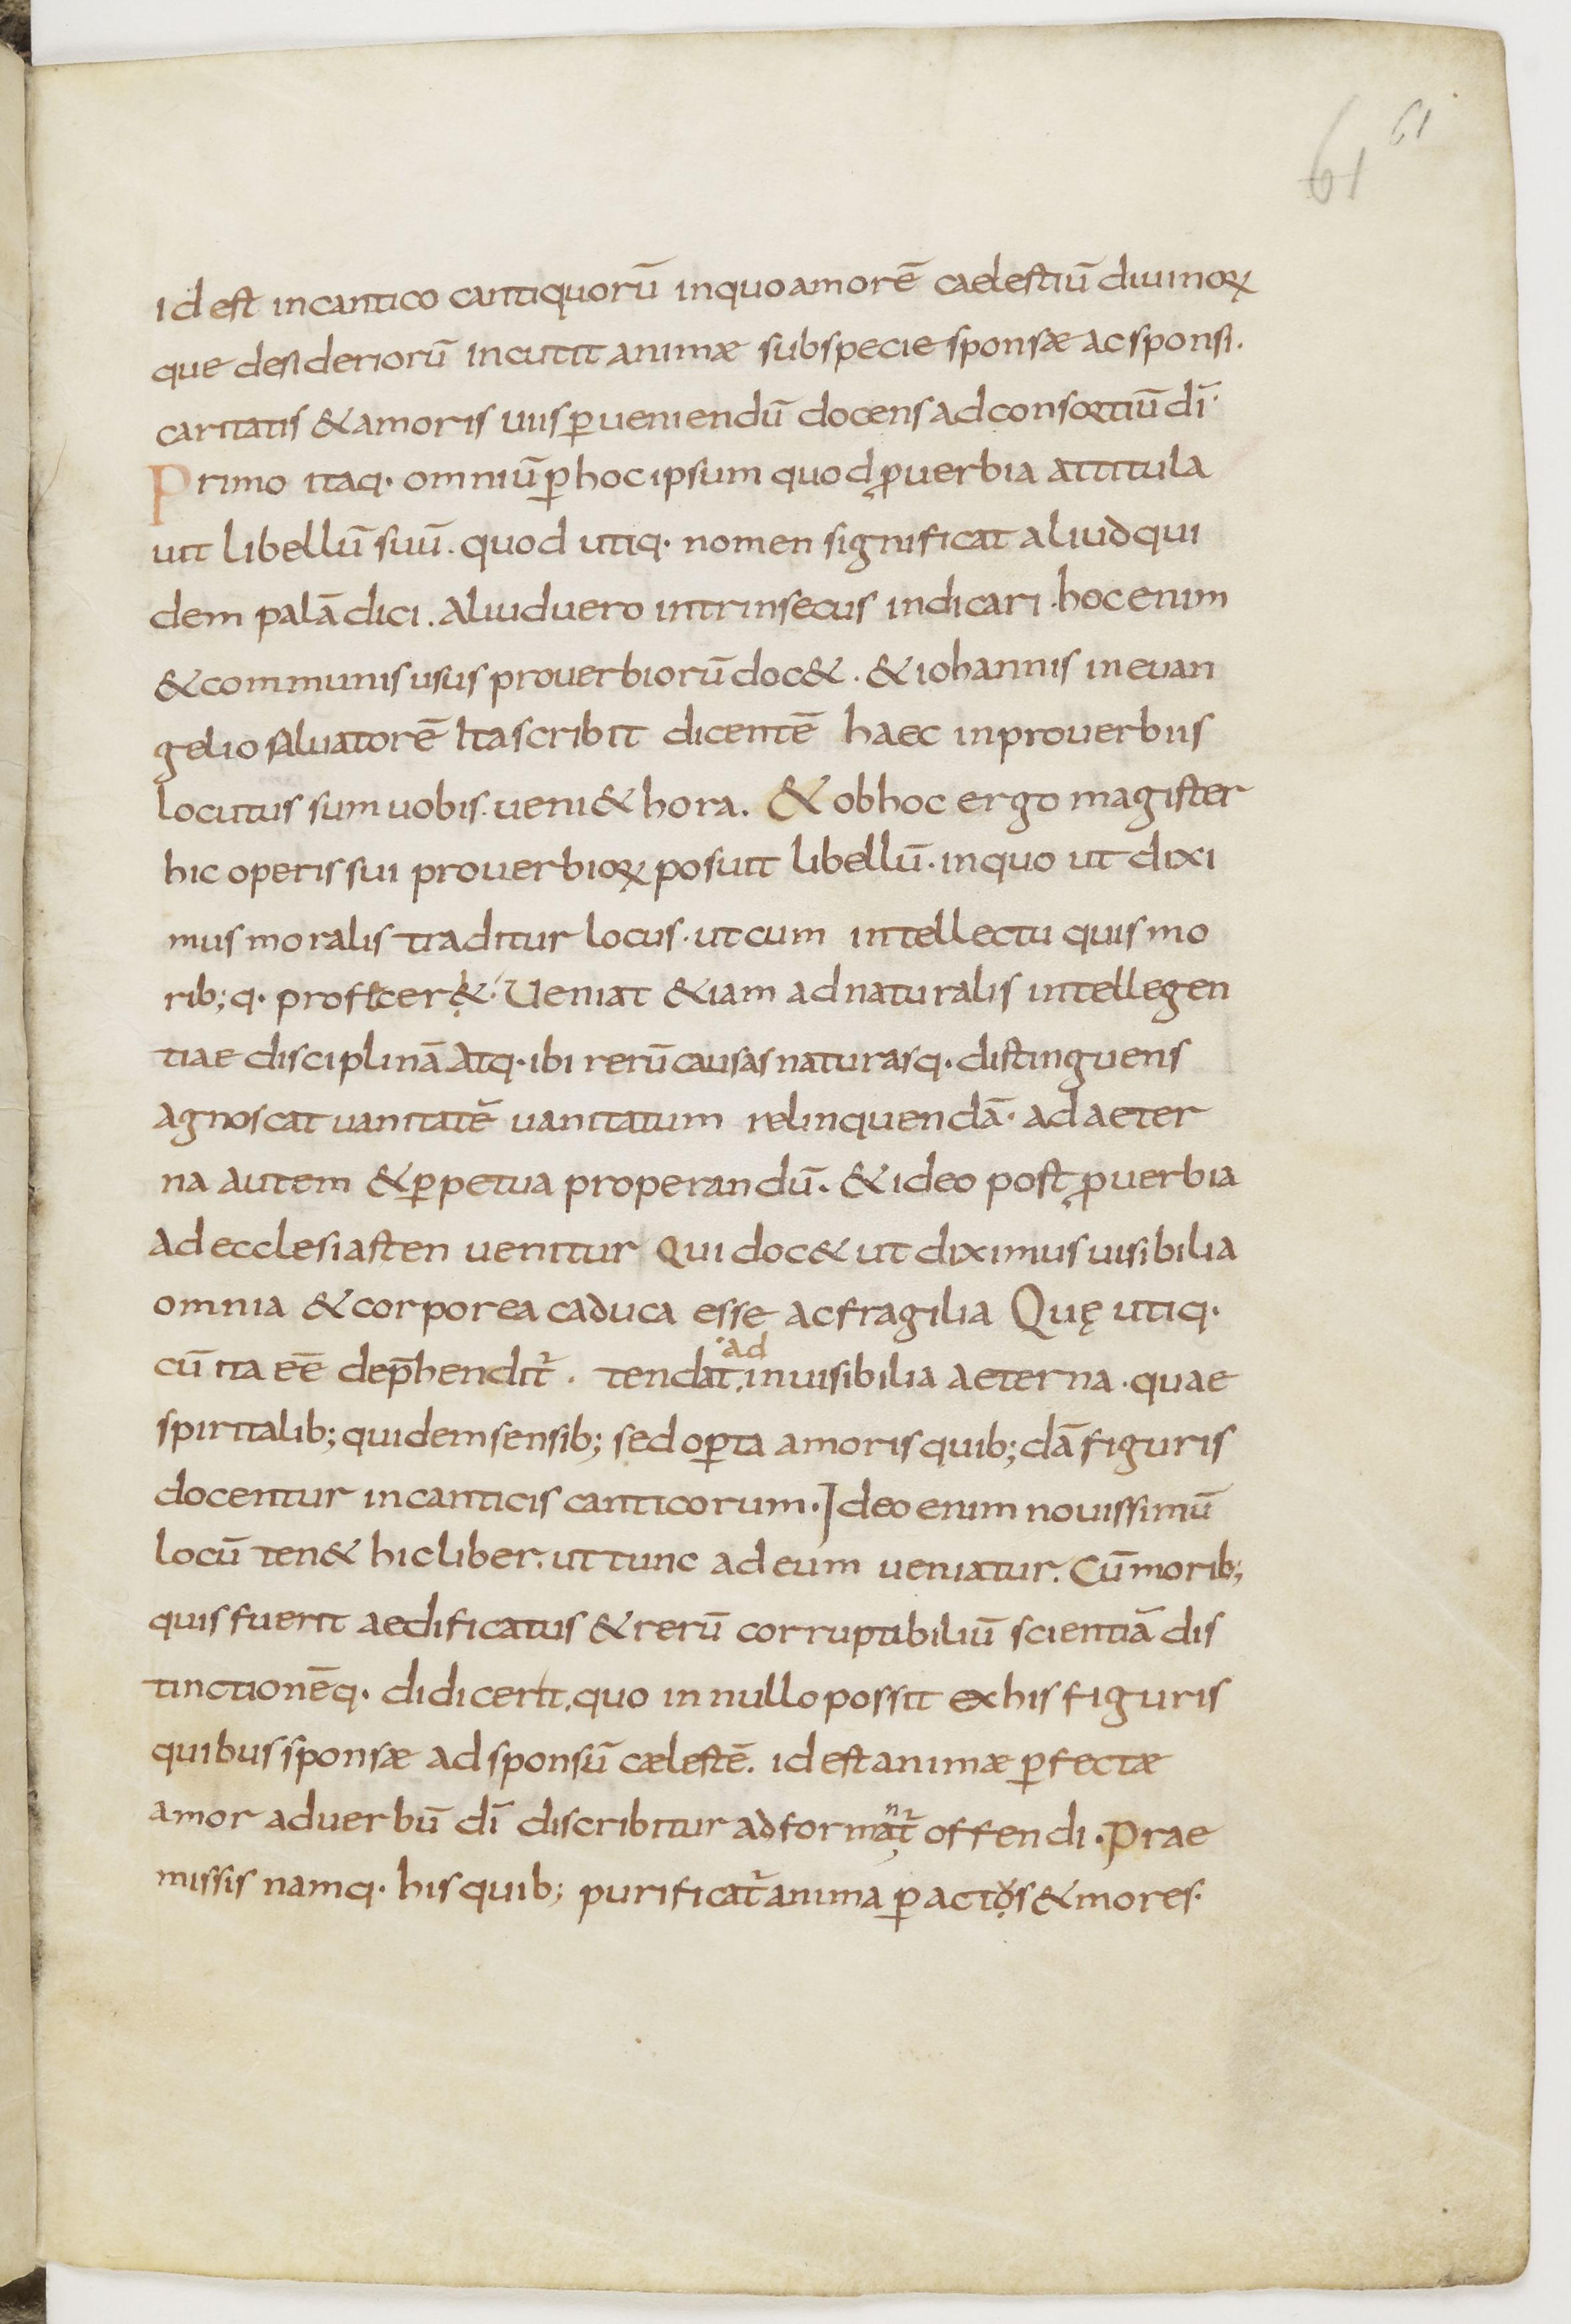 61 61
id est in cantico cantiquorū in quo amorē caelestiū diuinoꝝ
que desideriorū incutit animæ sub specie sponsæ ac sponsi.
caritatis & amoris uiis ꝑueniendū docens ad consortiū dī·
Primo itaq· omniū ꝑ hoc ipsum quod ꝓuerbia attitula
uit libellū suū. quod utiq· nomen significat aliud qui
dem palā dici. aliud uero intrinsecus indicari· hoc enim
& communis usus prouerbiorū doc&. & iohannis in euan
gelio saluatorē ita scribit dicentē haec in prouerbiis
locutus sum uobis. ueni& hora. & ob hoc ergo magister
hic operis sui prouerbioꝝ posuit libellū· in quo ut dixi
mus moralis traditur locus· ut cum intellectu quis mo
rib; q· proficer&· Ueniat &iam ad naturalis intellegen
tiae disciplinā atq· ibi rerū causas naturasq· distinguens
agnoscat uanitatē uanitatum relinquendā· ad aeter
na autem & ꝑpetua properandū. & ideo post ꝓuerbia
ad ecclesiasten uenitur qui doc& ut diximus uisibilia
omnia & corporea caduca esse ac fragilia Quę utiq·
cū ita eē dep̄hendit᷑. tendat ad inuisibilia aeterna· quae
spiritalib; quidem sensib; sed oꝑta amoris quib;dā figuris
docentur in canticis canticorum· Ideo enim nouissimū
locū ten& hic liber. ut tunc ad eum ueniatur. Cū morib;
quis fuerit aedificatus & rerū corruptibiliū scientiā dis
tinctionēq· didicerit. quo in nullo possit ex his figuris
quibus sponsæ ad sponsū cælestē. id est animæ ꝑfectæ
amor ad uerbū dī discribitur ad formant᷑ offendi· Prae
missis namq· his quib; purificat᷑ anima ꝑ actos & mores·